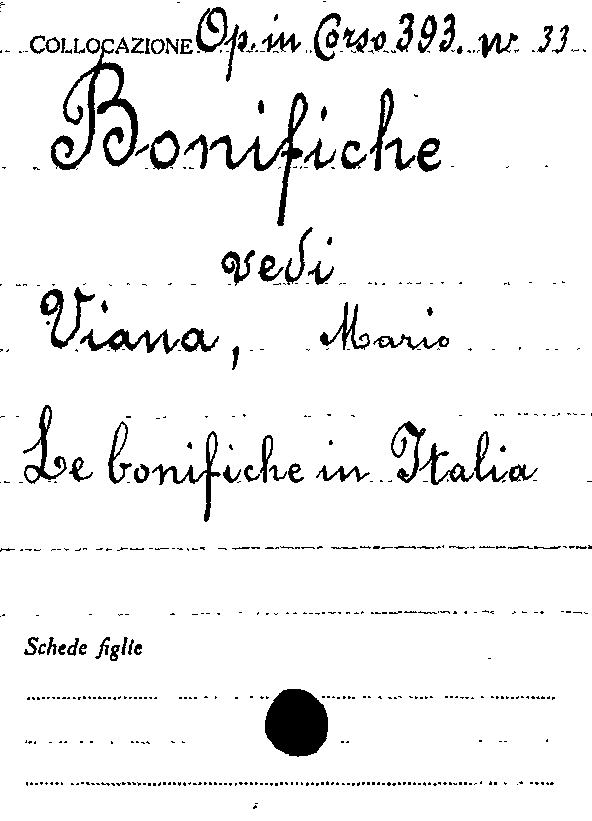 COLLOCAZIONE Op. in Corso 393. nr 33
Bonifiche
vedi
Viana, Mario
Le bonifiche in Italia
Schede figlie